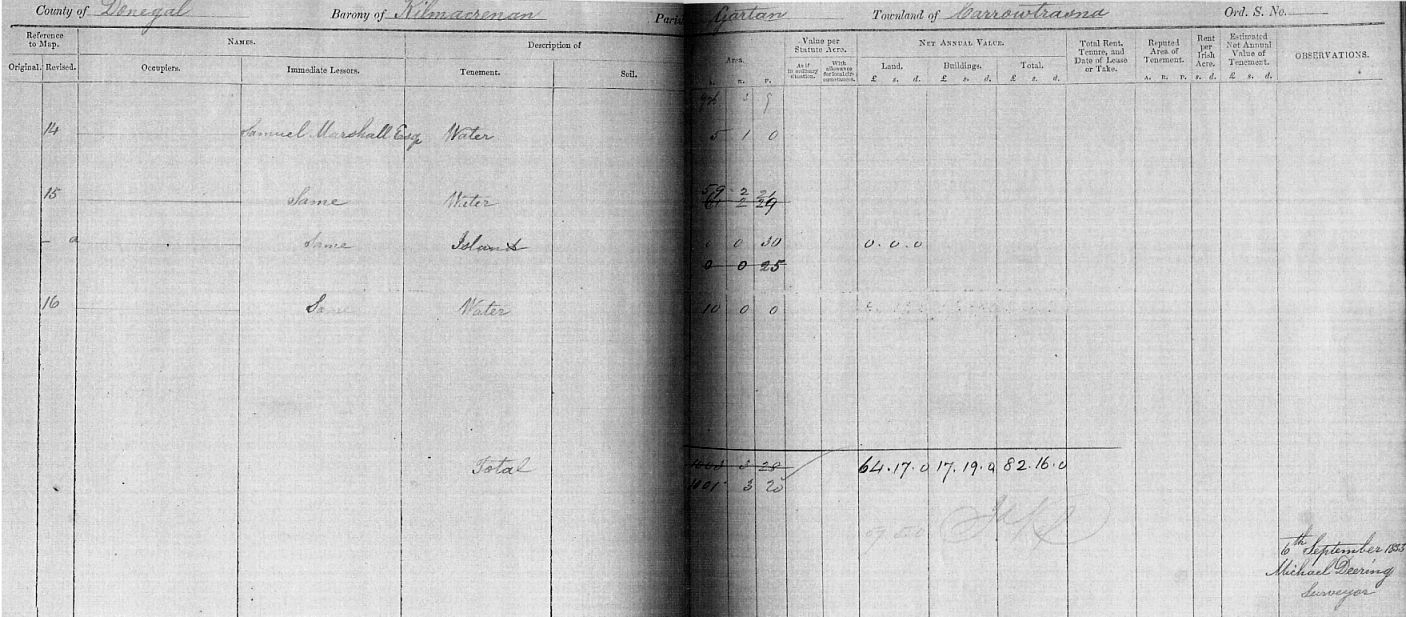 County of Donegal Barony of Kilmacrenan Gartan Townland of Carrowtrasna Ord. S. No.
Reference to Map. NAMES. Description of Area. Value per Statute Acre. NET ANNUAL VALUE. Total Rent, Tenure, and Date of Lease or Take. Reputed Area of Tenement. Rent per Irish Acre. Estimated Net Annual Value of Tenement. OBSERVATIONS.
Original. Revised. Occupiers. Immediate Lessors. Tenement. Soil. As if in ordinary situation. With allowance for local circumstances. Land. Buildings. Total.
R. P. £ s. d. £ s. d. £ s. d. A. R. P. s. d. £ s. d.
14 Samuel Marshall Esq Water 5 1 0
59 2
15 Same Water
a Same Island 0 30 0.0.0
0 0 25
16 Same Water 10 0 0
Total 1003 3 20 64.17.0 17.19.0 82.16.0
1001 3 20
6th September 1855
Michael Deering
Surveyor